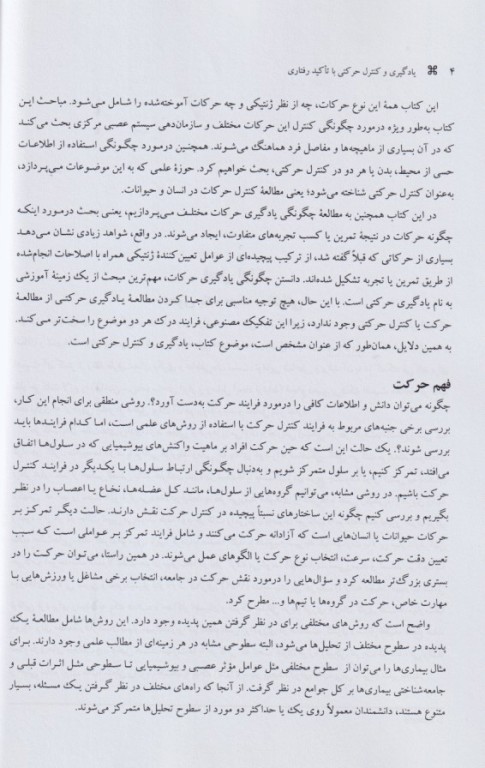 ۴ ⌘ یادگیری و کنترل حرکتی با تأکید رفتاری
این کتاب همهٔ این نوع حرکات، چه از نظر ژنتیکی و چه حرکات آموخته‌شده را شامل می‌شود. مباحث این
کتاب به‌طور ویژه درمورد چگونگی کنترل این حرکات مختلف و سازمان‌دهی سیستم عصبی مرکزی بحث می‌کند
که در آن بسیاری از ماهیچه‌ها و مفاصل فرد هماهنگ می‌شوند. همچنین درمورد چگونگی استفاده از اطلاعات
حسی از محیط، بدن یا هر دو در کنترل حرکتی، بحث خواهیم کرد. حوزهٔ علمی که به این موضوعات می‌پردازد،
به‌عنوان کنترل حرکتی شناخته می‌شود؛ یعنی مطالعهٔ کنترل حرکات در انسان و حیوانات.
در این کتاب همچنین به مطالعهٔ چگونگی یادگیری حرکات مختلف می‌پردازیم، یعنی بحث درمورد اینکه
چگونه حرکات در نتیجهٔ تمرین یا کسب تجربه‌های متفاوت، ایجاد می‌شوند. در واقع، شواهد زیادی نشان می‌دهد
بسیاری از حرکاتی که قبلاً گفته شد، از ترکیب پیچیده‌ای از عوامل تعیین کنندهٔ ژنتیکی همراه با اصلاحات انجام‌شده
از طریق تمرین یا تجربه تشکیل شده‌اند. دانستن چگونگی یادگیری حرکات، مهم‌ترین مبحث از یک زمینهٔ آموزشی
به نام یادگیری حرکتی است. با این حال، هیچ توجیه مناسبی برای جدا کردن مطالعهٔ یادگیری حرکتی از مطالعهٔ
حرکت یا کنترل حرکتی وجود ندارد، زیرا این تفکیک مصنوعی، فرایند درک هر دو موضوع را سخت‌تر می‌کند.
به همین دلایل، همان‌طور که از عنوان مشخص است، موضوع کتاب، یادگیری و کنترل حرکتی است.
فهم حرکت
چگونه می‌توان دانش و اطلاعات کافی را درمورد فرایند حرکت به‌دست آورد؟. روشی منطقی برای انجام این کار،
بررسی برخی جنبه‌های مربوط به فرایند کنترل حرکت با استفاده از روش‌های علمی است، اما کدام فرایندها باید
بررسی شوند؟. یک حالت این است که حین حرکت افراد بر ماهیت واکنش‌های بیوشیمیایی که در سلول‌ها اتفاق
می‌افتد، تمرکز کنیم، یا بر سلول متمرکز شویم و به‌دنبال چگونگی ارتباط سلول‌ها با یکدیگر در فرایند کنترل
حرکت باشیم. در روشی مشابه، می‌توانیم گروه‌هایی از سلول‌ها، مانند کل عضله‌ها، نخاع یا اعصاب را در نظر
بگیریم و بررسی کنیم چگونه این ساختارهای نسبتاً پیچیده در کنترل حرکت نقش دارند. حالت دیگر تمرکز بر
حرکات حیوانات یا انسان‌هایی است که آزادانه حرکت می‌کنند و شامل فرایند تمرکز بر عواملی است که سبب
تعیین دقت حرکت، سرعت، انتخاب نوع حرکت یا الگوهای عمل می‌شوند. در همین راستا، می‌توان حرکت را در
بستری بزرگ‌تر مطالعه کرد و سؤال‌هایی را درمورد نقش حرکت در جامعه، انتخاب برخی مشاغل یا ورزش‌هایی با
مهارت خاص، حرکت در گروه‌ها یا تیم‌ها و... مطرح کرد.
واضح است که روش‌های مختلفی برای در نظر گرفتن همین پدیده وجود دارد. این روش‌ها شامل مطالعهٔ یک
پدیده در سطوح مختلف از تحلیل‌ها می‌شود، البته سطوحی مشابه در هر زمینه‌ای از مطالب علمی وجود دارند. برای
مثال بیماری‌ها را می‌توان از سطوح مختلفی مثل عوامل مؤثر عصبی و بیوشیمیایی تا سطوحی مثل اثرات قبلی و
جامعه‌شناختی بیماری‌ها بر کل جوامع در نظر گرفت. از آنجا که راه‌های مختلف در نظر گرفتن یک مسئله، بسیار
متنوع هستند، دانشمندان معمولاً روی یک یا حداکثر دو مورد از سطوح تحلیل‌ها متمرکز می‌شوند.